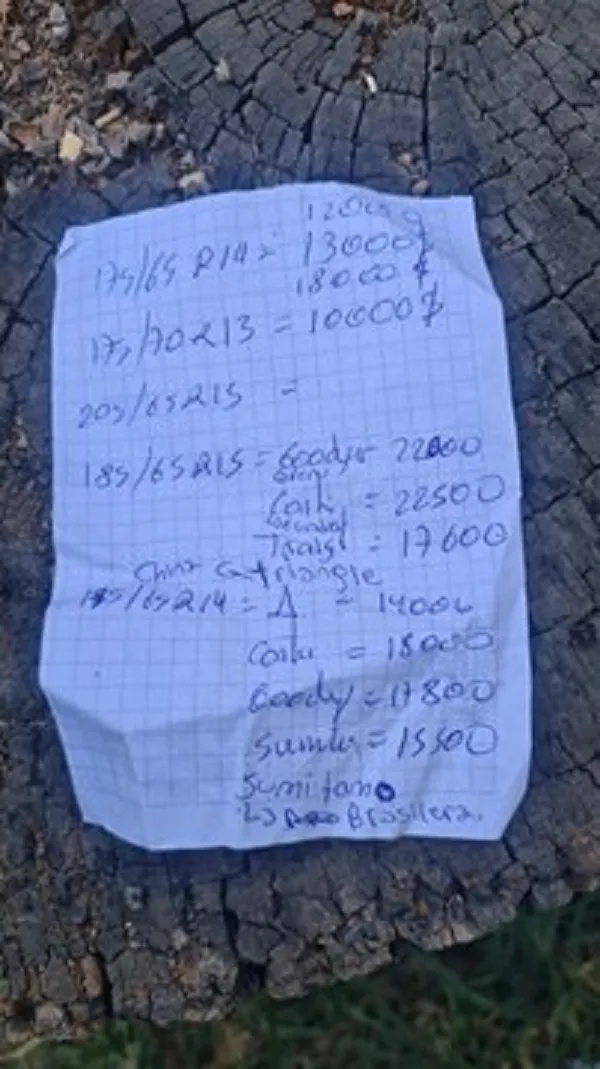 12000 $
175/65 R14 = 13000 $
18000 $
175/70 R13 = 10000 $
205/65 R15 =
185/65 R15 = Goodyer 22000
= 22500
= 17600
China triangle
/65 R14 = Δ = 14000
= 18000
Goody = 17800
Sumito = 15500
Sumitomo
Brasilera.